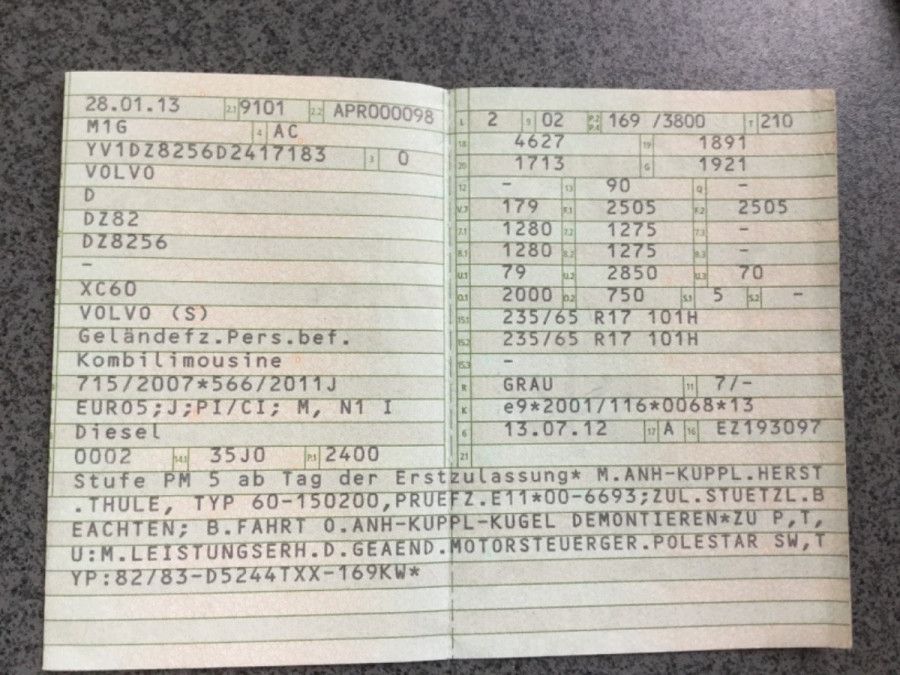 28.01.13 2.1 9101 2.2 APR000098
M1G 4 AC
YV1DZ8256D2417183 3 0
VOLVO
D
DZ82
DZ8256
-
XC60
VOLVO (S)
Geländefz.Pers.bef.
Kombilimousine
715/2007*566/2011J
EURO5;J;PI/CI; M, N1 I
Diesel
0002 14.1 35J0 P.1 2400
L 2 9 02 P.2 P.4 169 /3800 T 210
18 4627 19 1891
20 1713 G 1921
12 - 13 90 Q -
V.7 179 F.1 2505 F.2 2505
7.1 1280 7.2 1275 7.3 -
8.1 1280 8.2 1275 8.3 -
U.1 79 U.2 2850 U.3 70
O.1 2000 O.2 750 S.1 5 S.2 -
15.1 235/65 R17 101H
15.2 235/65 R17 101H
15.3 -
R GRAU 11 7/-
K e9*2001/116*0068*13
6 13.07.12 17 A 16 EZ193097
21
Stufe PM 5 ab Tag der Erstzulassung* M.ANH-KUPPL.HERST
.THULE, TYP 60-150200,PRUEFZ.E11*00-6693;ZUL.STUETZL.B
EACHTEN; B.FAHRT O.ANH-KUPPL-KUGEL DEMONTIEREN*ZU P,T,
U:M.LEISTUNGSERH.D.GEAEND.MOTORSTEUERGER.POLESTAR SW,T
YP:82/83-D5244TXX-169KW*